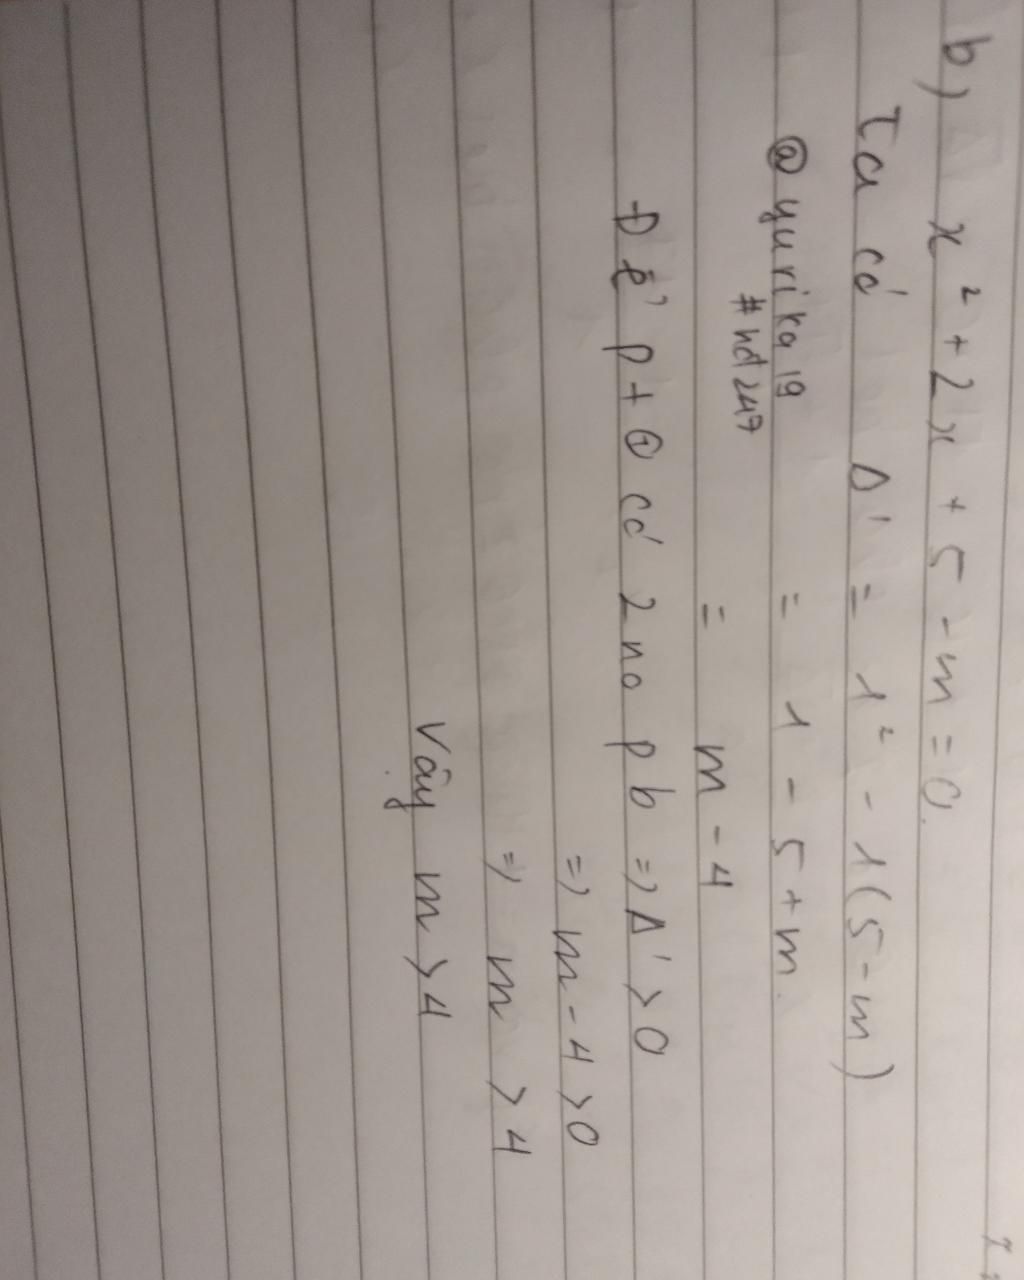 b) x² + 2x + 5 - m = 0.
Ta có Δ' = 1² - 1(5-m)
@yurika19 = 1 - 5 + m.
#hđ247
= m - 4
Để pt ① có 2 no pb => Δ' > 0
=> m - 4 > 0
=> m > 4
Vậy m > 4